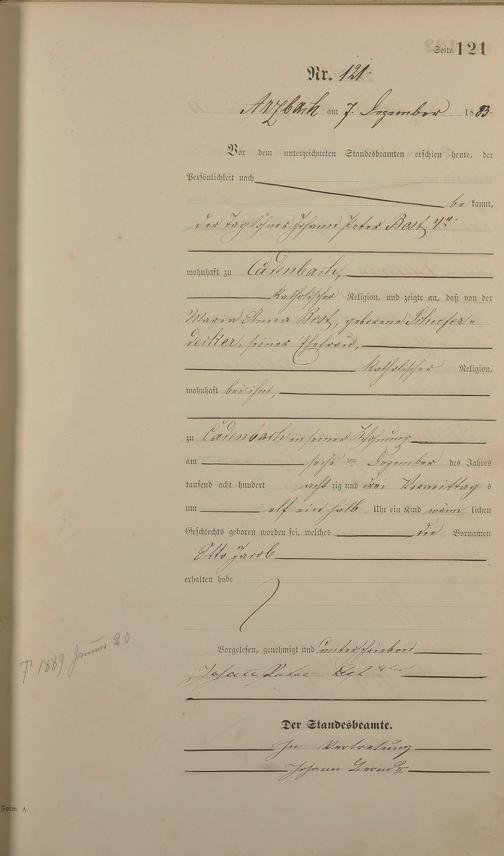 Seite 121
Nr. 121.
Arzbach am 7. Dezember 1883.
Vor dem unterzeichneten Standesbeamten erschien heute, der
Persönlichkeit nach
be kannt,
der Taglöhner Johann Peter Best 4ter
wohnhaft zu Cadenbach,
katholischer Religion, und zeigte an, daß von der
Maria Anna Best, geborene Schiefer=
decker, seiner Ehefrau,
katholischer Religion,
wohnhaft bei ihm,
zu Cadenbach in seiner Wohnung
am sechs ten Dezember des Jahres
tausend acht hundert acht zig und drei Vormittag s
um elf ein halb Uhr ein Kind männ lichen
Geschlechts geboren worden sei, welches die Vornamen
Otto Jacob
erhalten habe
Vorgelesen, genehmigt und unterschrieben
Johann Peter Best 4ter
† 1889 Januar 20
Der Standesbeamte.
In Vertretung
Johann
Form. A.